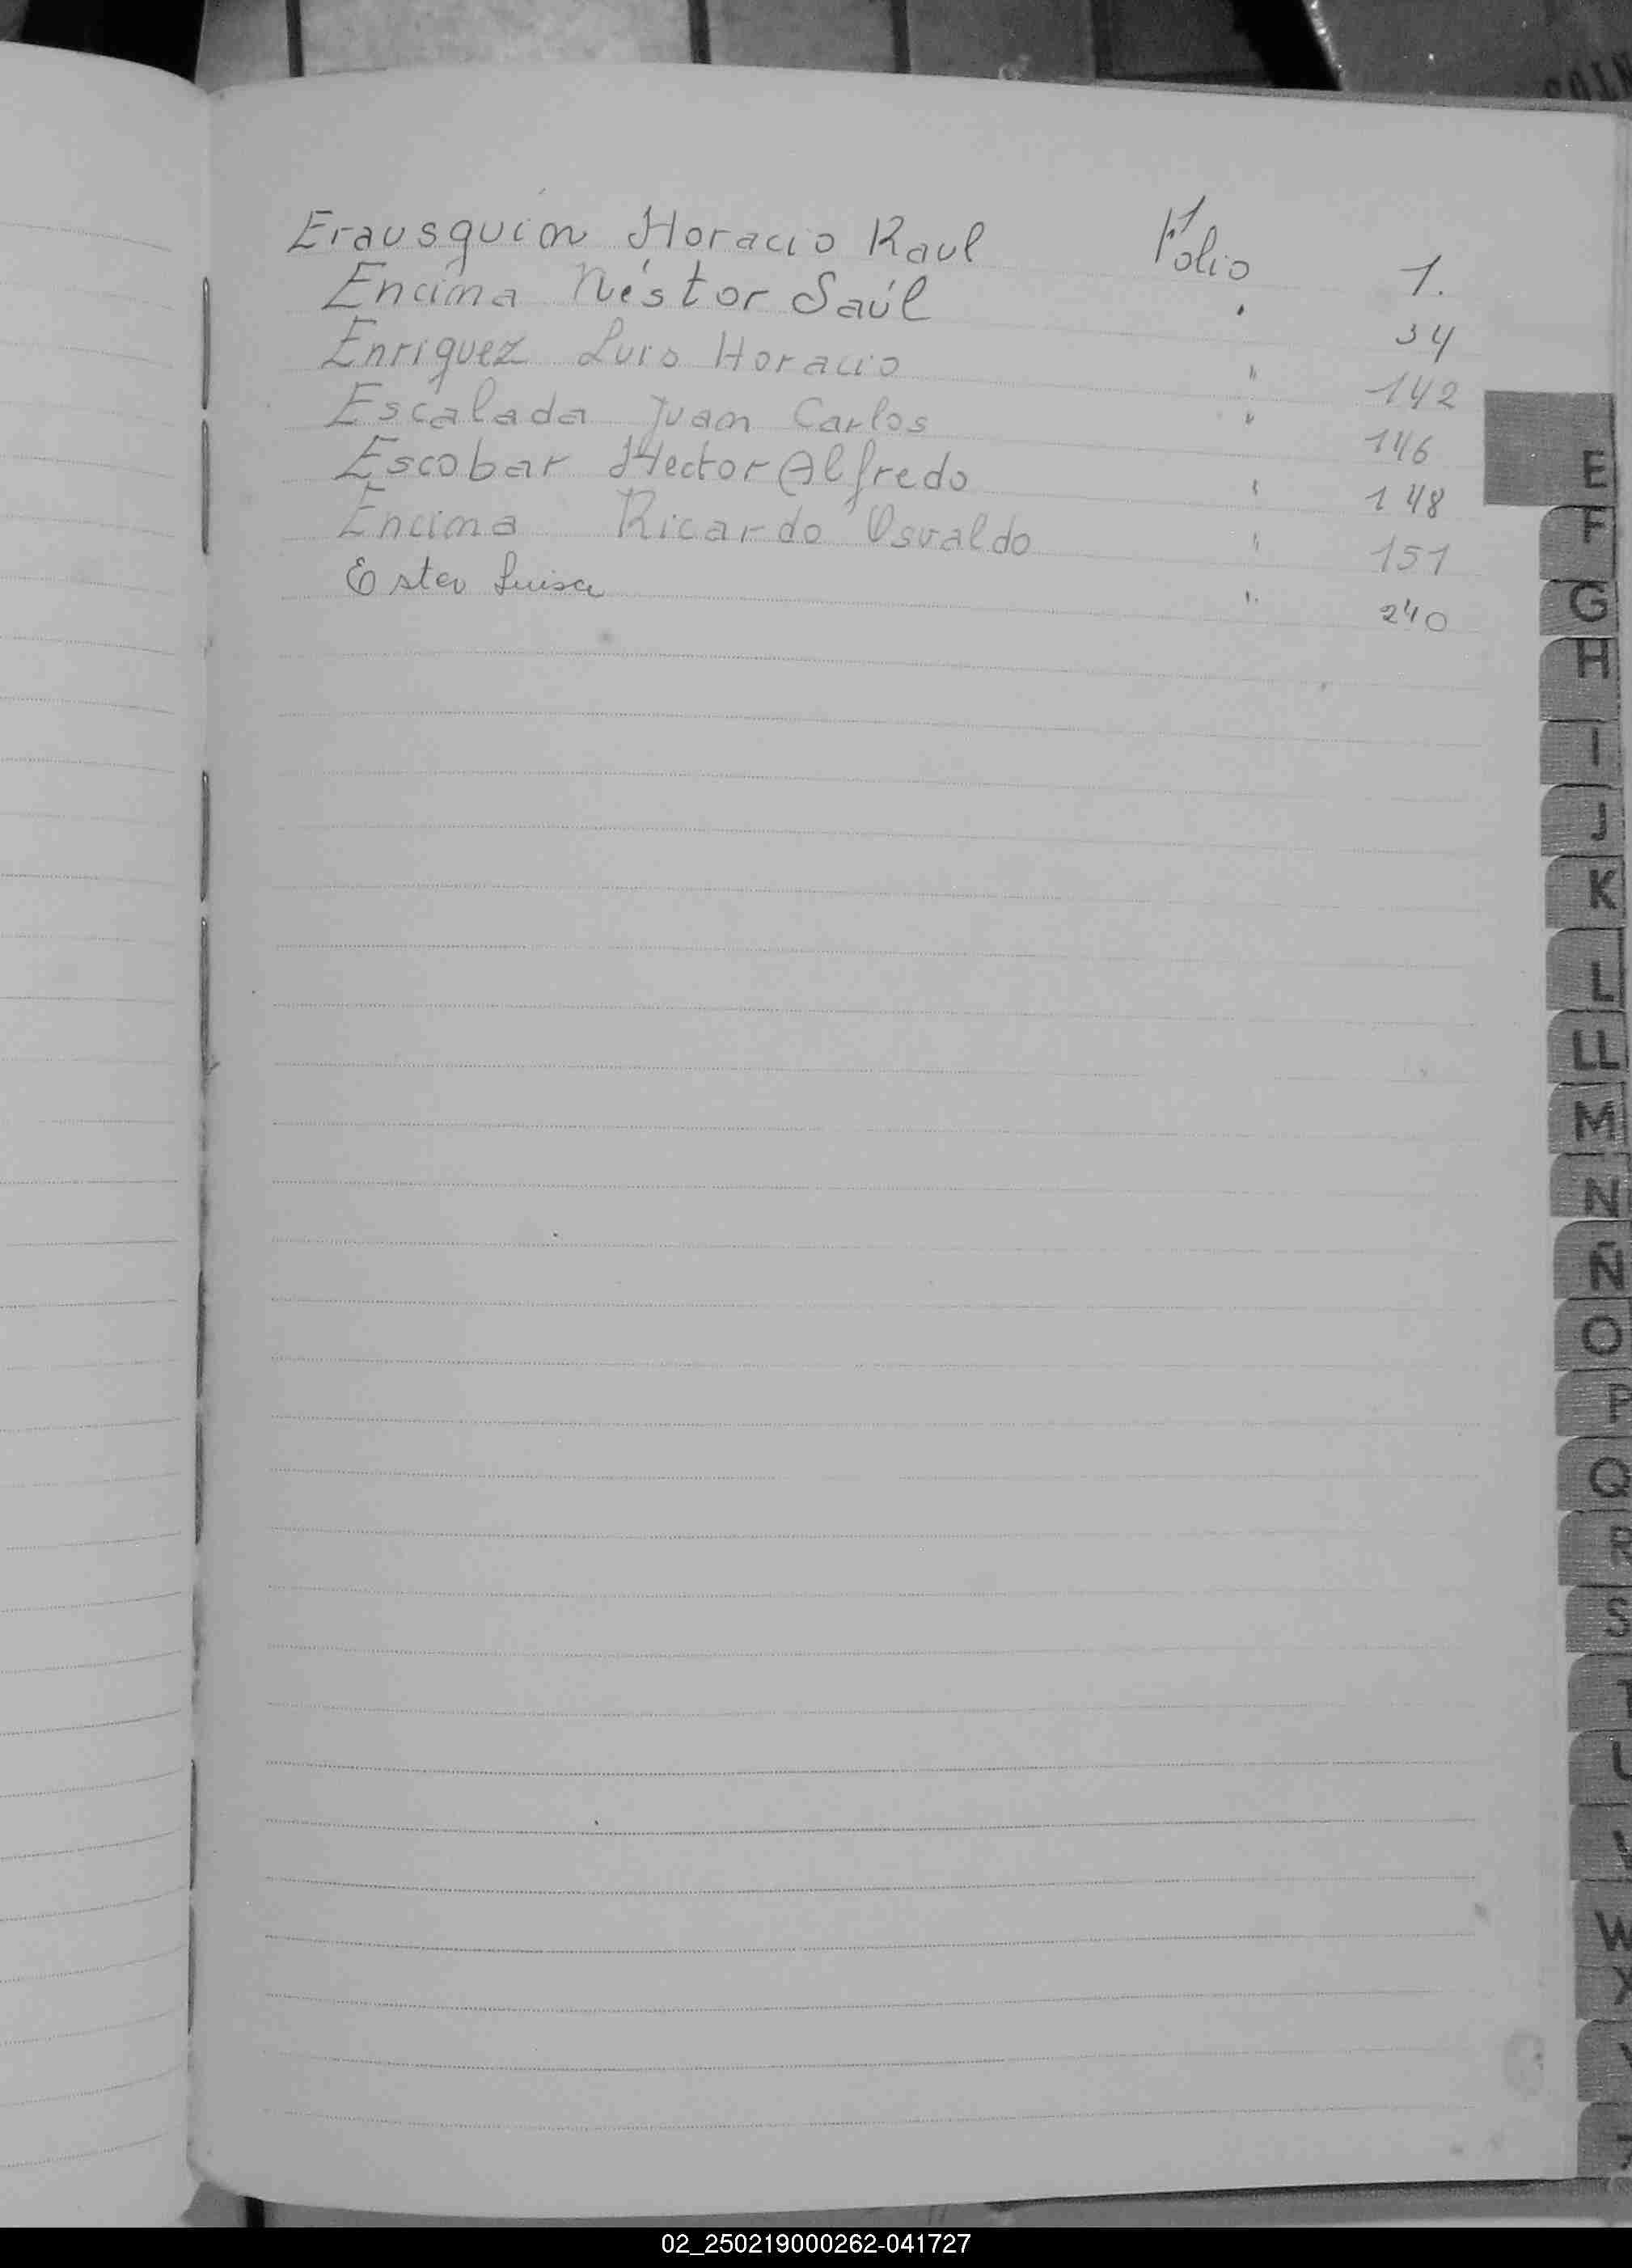 Erausquin Horacio Raul Folio 1.
Encina Néstor Saúl " 34
Enriquez Luis Horacio " 142
Escalada Juan Carlos " 146
Escobar Hector Alfredo " 148
Encina Ricardo Osvaldo " 151
Ester Luisa " 240
E
F
G
H
I
J
K
L
LL
M
N
Ñ
O
P
Q
R
S
T
U
V
W
X
Y
Z
02_250219000262-041727